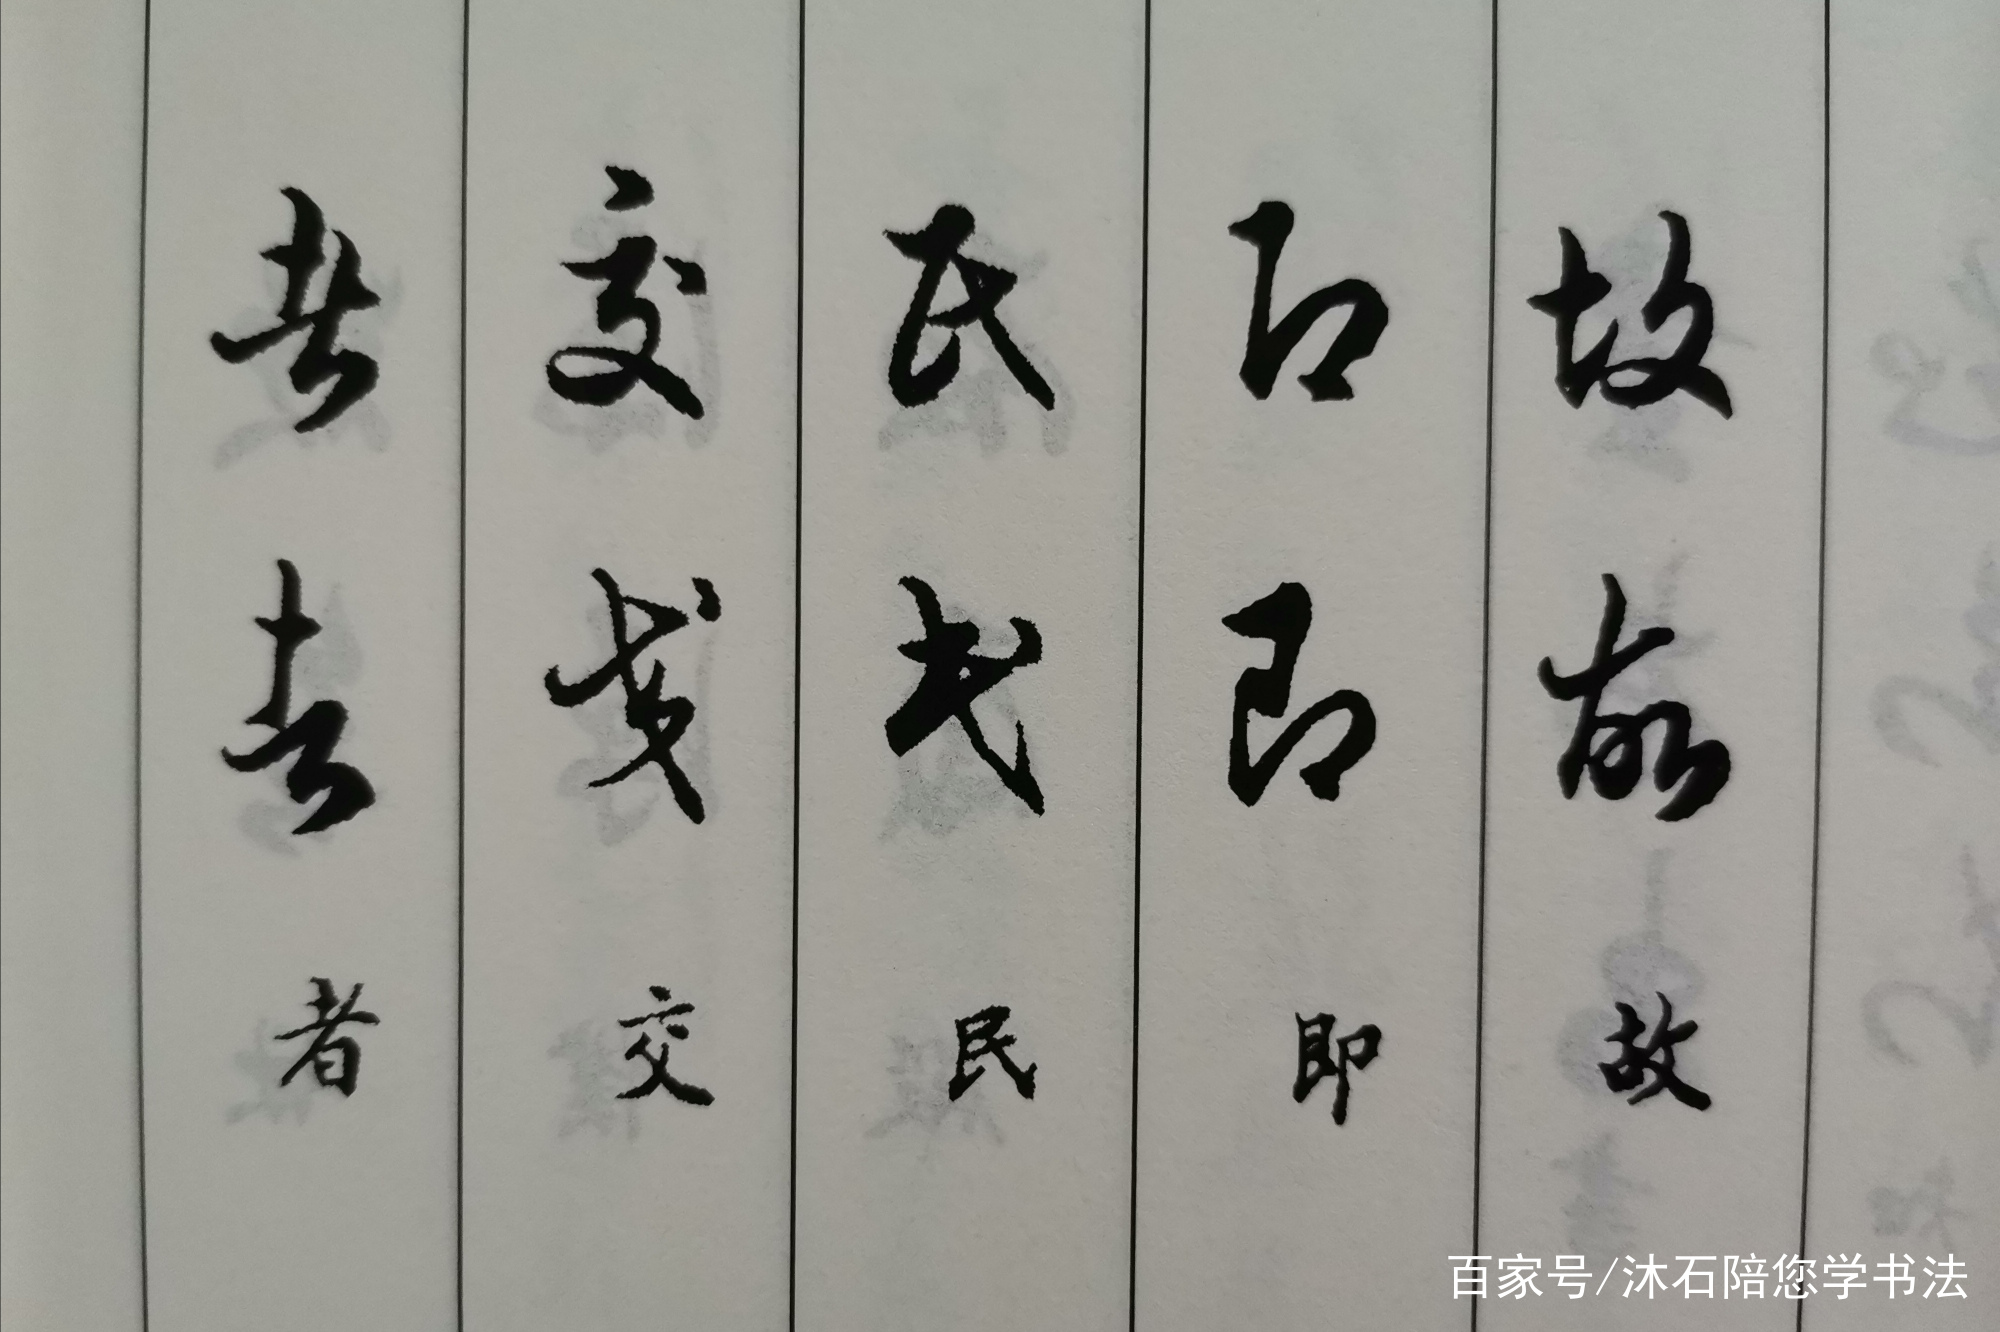 故故故
即即即
民民民
交交交
者者者
百家号/沐石陪您学书法